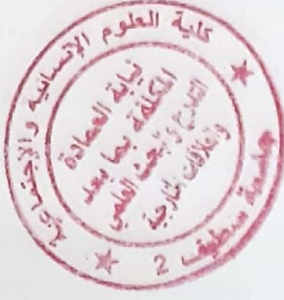 كلية العلوم الإنسانية والاجتماعية
نيابة العمادة
المكلفة بما بعد
التدرج والبحث العلمي
والعلاقات الخارجية
جامعة سطيف 2